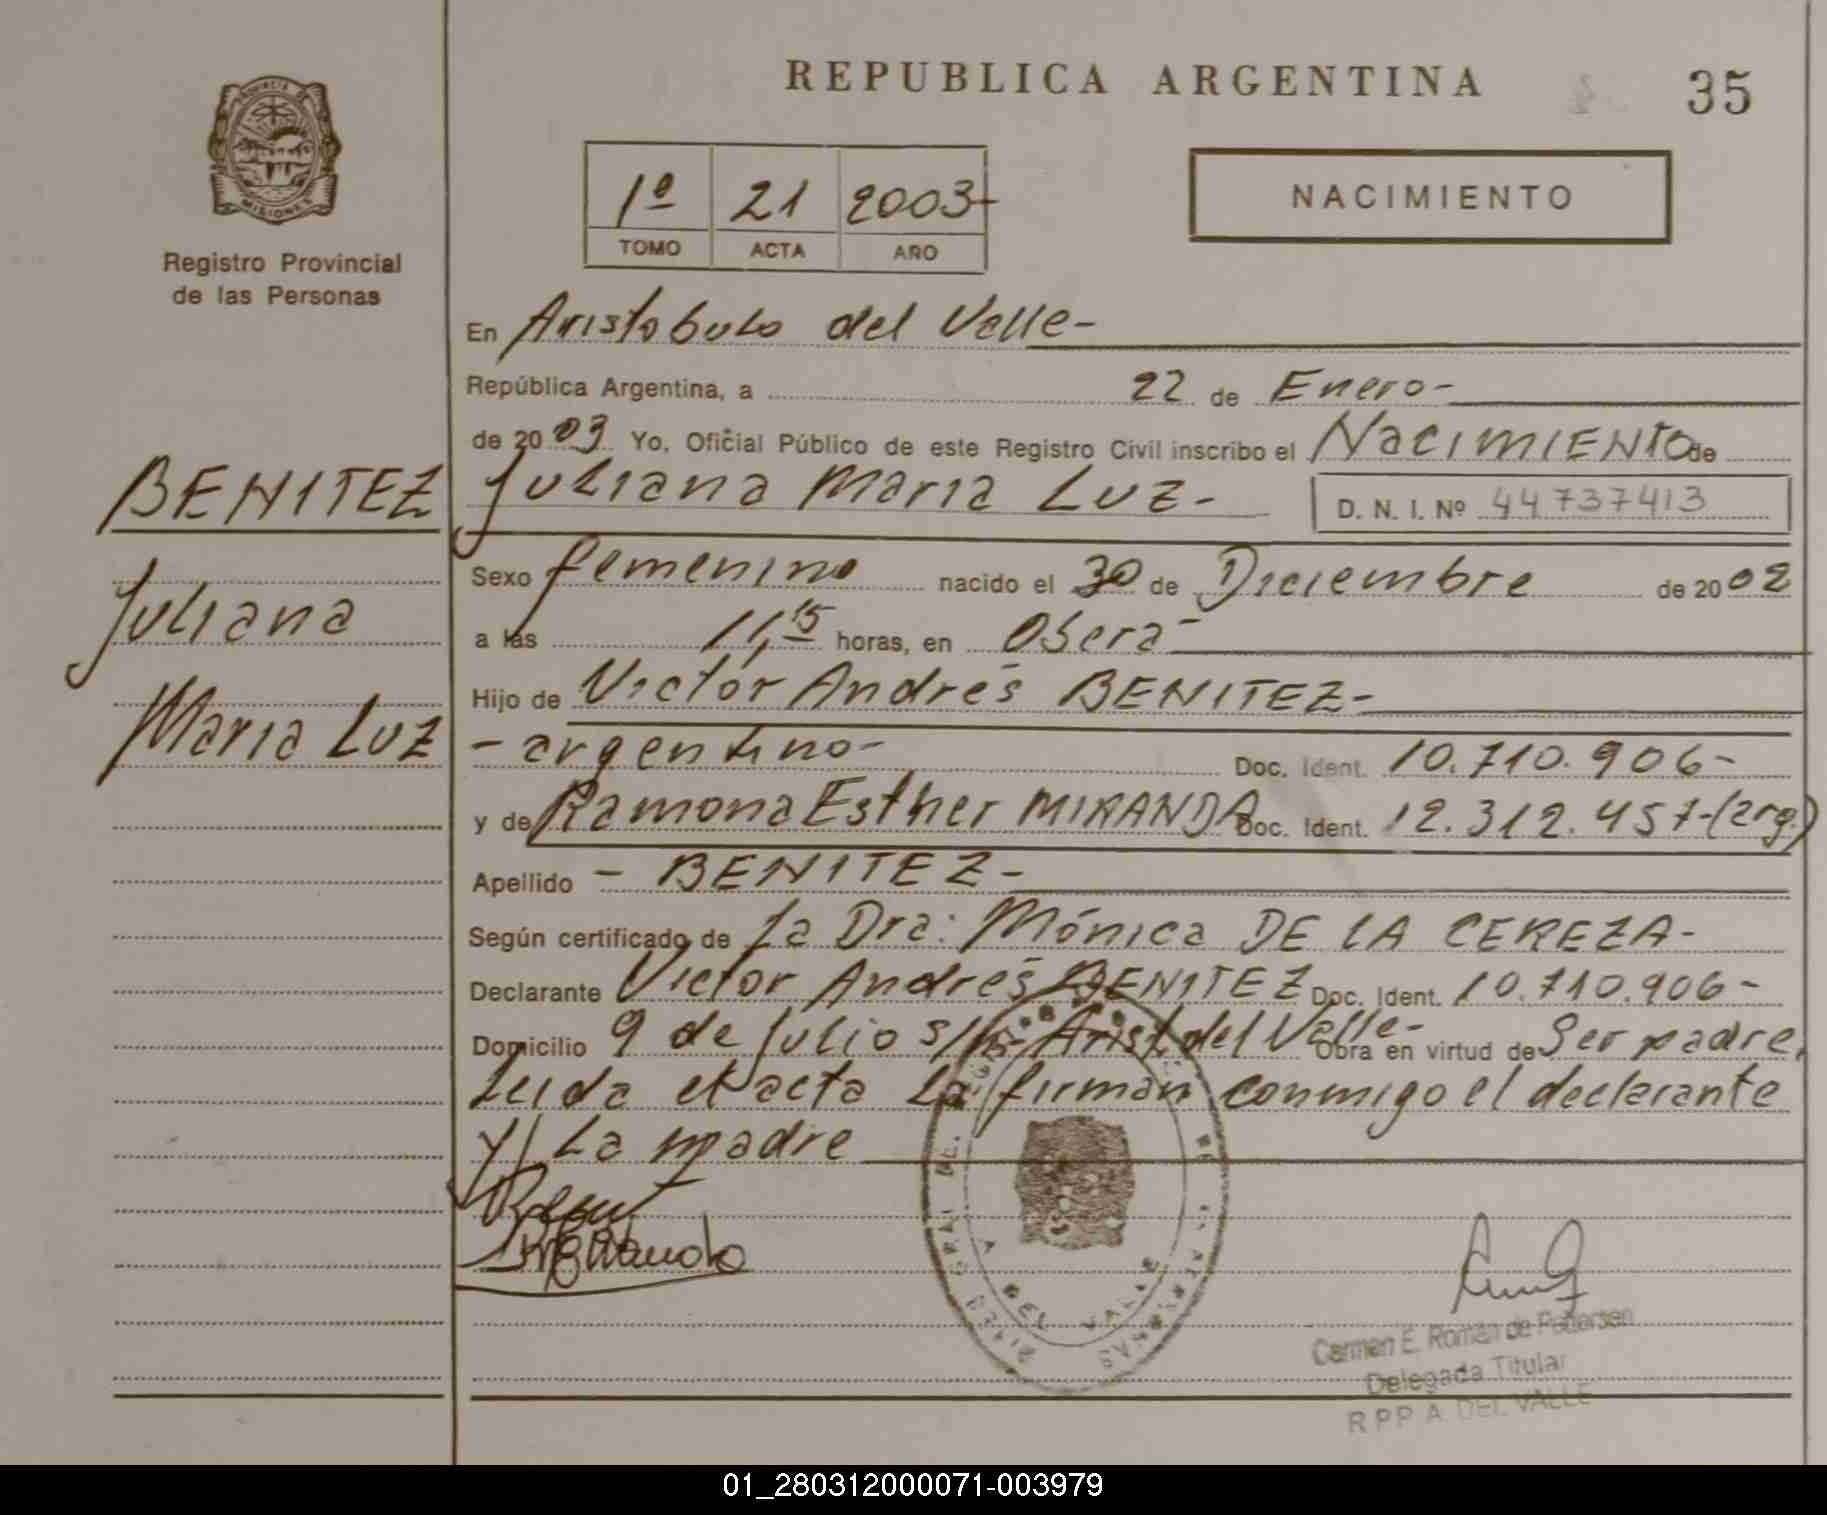 REPUBLICA ARGENTINA
35
PROVINCIA DE
MISIONES
Registro Provincial
de las Personas
1º 21 2003
TOMO ACTA AÑO
NACIMIENTO
En Aristobulo del Valle-
República Argentina, a 22 de Enero-
de 2003 Yo, Oficial Público de este Registro Civil inscribo el NACIMIENTO de
Juliana Maria Luz- D. N. I. Nº 44737413
BENITEZ
Juliana
Maria Luz
Sexo femenino nacido el 30 de Diciembre de 2002
a las 11,15 horas, en Oberá-
Hijo de Victor Andrés BENITEZ-
- argentino- Doc. Ident. 10.710.906-
y de Ramona Esther MIRANDA Doc. Ident. 12.312.457-(arg.)
Apellido - BENITEZ-
Según certificado de la Dra: Mónica DE LA CEREZA-
Declarante Victor Andrés BENITEZ Doc. Ident. 10.710.906-
Domicilio 9 de Julio s/n- Arist. del Valle- Obra en virtud de Ser padre,
Leida el acta la firman conmigo el declarante
y/ La madre
A DEL VALLE
Carmen E. Román de Pedersen
Delegada Titular
R P P A DEL VALLE
01_280312000071-003979